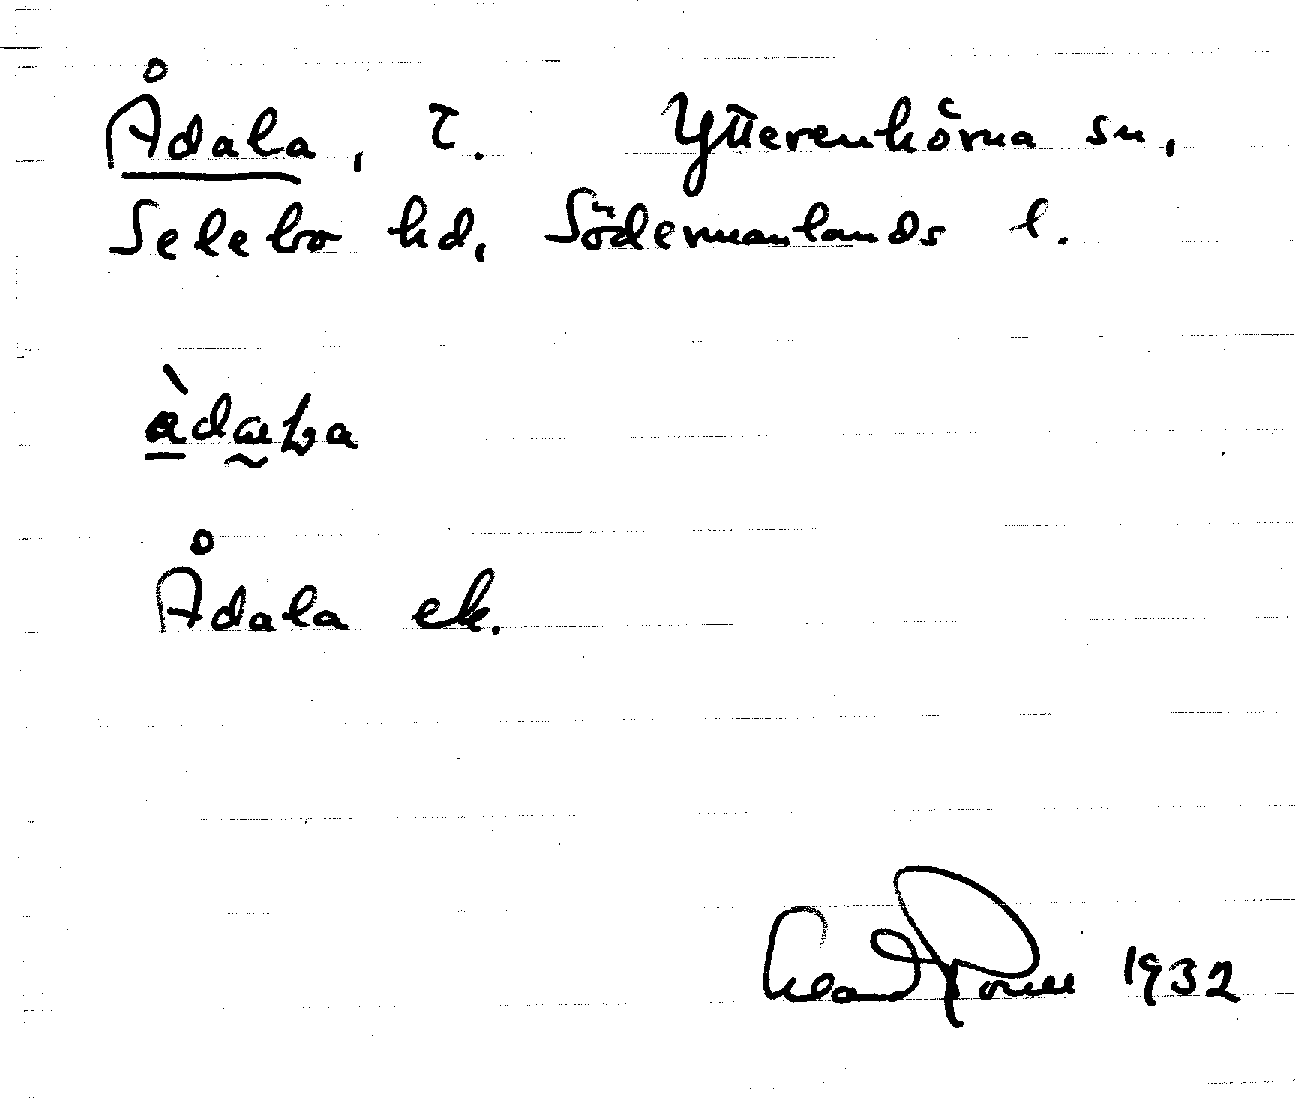 Ådala, t. Ytterenhörna sn,
Selebo hd, Södermanlands l.
àdaƚa
Ådala ek.
1932